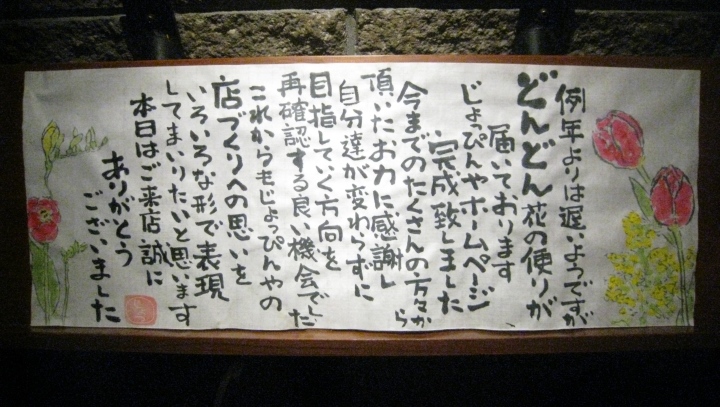 例年よりは遅いようですが
どんどん花の便りが
届いております
じょっぴんやホームページ
完成致しました
今までのたくさんの方々から
頂いたお力に感謝し
自分達が変わらずに
目指していく方向を
再確認する良い機会でした
これからもじょっぴんやの
店づくりへの思いを
いろいろな形で表現
してまいりたいと思います
本日はご来店誠に
ありがとう
ございました